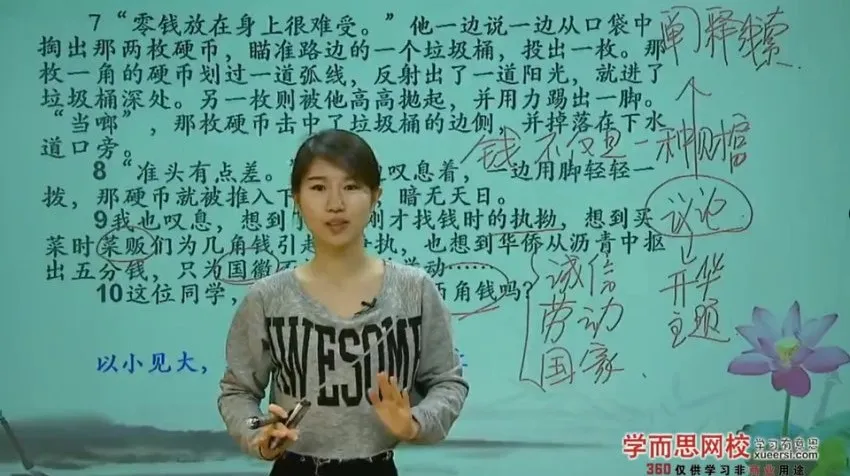 7“零钱放在身上很难受。”他一边说一边从口袋中
掏出那两枚硬币，瞄准路边的一个垃圾桶，投出一枚。那
枚一角的硬币划过一道弧线，反射出了一道阳光，就进了
垃圾桶深处。另一枚则被他高高抛起，并用力踢出一脚。
“当啷”，那枚硬币击中了垃圾桶的边侧，并掉落在下水
道口旁。
8“准头有点差。”叹息着，一边用脚轻轻一
拨，那硬币就被推入下 暗无天日。
9我也叹息，想到 刚才找钱时的执拗，想到买
菜时菜贩们为几角钱引起 执，也想到华侨从沥青中抠
出五分钱，只为国徽不 举动
10这位同学， 两角钱吗？
以小见大，
阐释线索
钱不仅是一种财富
议论
升华
主题
诚信
劳动
国家
AWESOME
学而思网校
学习有意思
xueersi.com
360仅供学习非商业用途